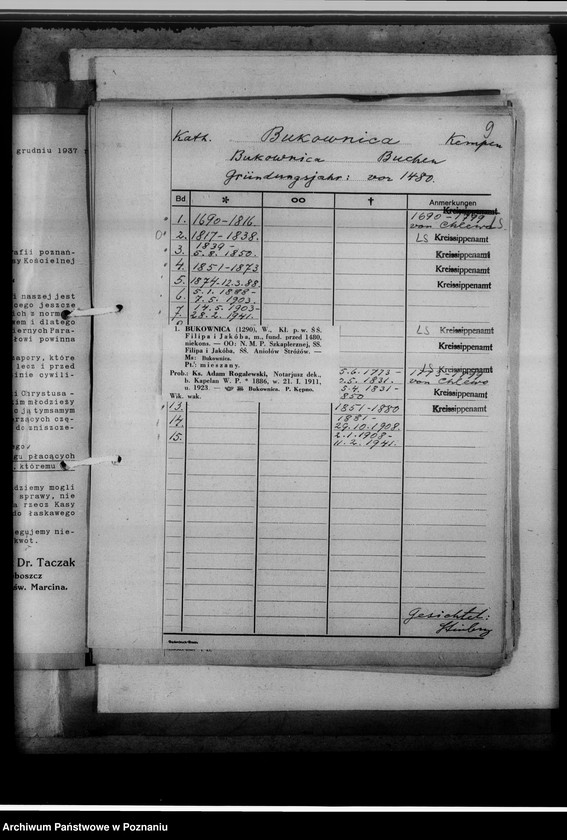 grudniu 1937
rafii poznań-
sy Kościelnej
i naszej jest
ego jeszcze
ich z norm
em i dlatego
iernych Para-
rowi powinna
zapory, które
lesz i przed
nie cywili-
i Chrystusa -
kim młodzieży
o ją tymsamym
rzących czę-
do zniszcze-
ego.
gu płacących
, któremu
dziemy mogli
sprawy, nie
a rzecz Kasy
do łaskawego
egujemy nie-
kwot.
Dr. Taczak
boszcz
św. Marcina.
9
Kath. Bukownica Kempen
Bukownica Buchen
Gründungsjahr: vor 1480.
Bd * ∞ † Anmerkungen
Kreissippenamt
1. 1690-1816. 1690-1799 LS
von Chlewo
2. 1817-1838. LS Kreissippenamt
3. 1839-
5.8.1850. Kreissippenamt
4. 1851-1873 Kreissippenamt
5. 1874-12.3.88. Kreissippenamt
6. 5.1.1888-
7.5.1903.
7. 14.5.1903-
28.2.1941.
1. BUKOWNICA (1290), W., Kł. p. w. ŚŚ.
Filipa i Jakóba, m., fund. przed 1480,
niekons. — OO: N. M. P. Szkaplerznej, ŚŚ.
Filipa i Jakóba, ŚŚ. Aniołów Stróżów. —
Ms: Bukownica.
Pt.: mieszany.
LS Kreissippenamt
Kreissippenamt
Prob.: Ks. Adam Rogalewski, Notarjusz dek.,
b. Kapelan W. P. * 1886, w. 21. I. 1911,
u. 1923. — Bukownica. P. Kępno.
Wik. wak.
5.6.1773-
2.5.1831.
von Chlewo
5.4.1831-
850 Kreissippenamt
13. 1851-1880 Kreissippenamt
14. 1881-
29.10.1908.
15. 2.1.1908-
11.2.1941.
Gesichtet:
Archiwum Państwowe w Poznaniu